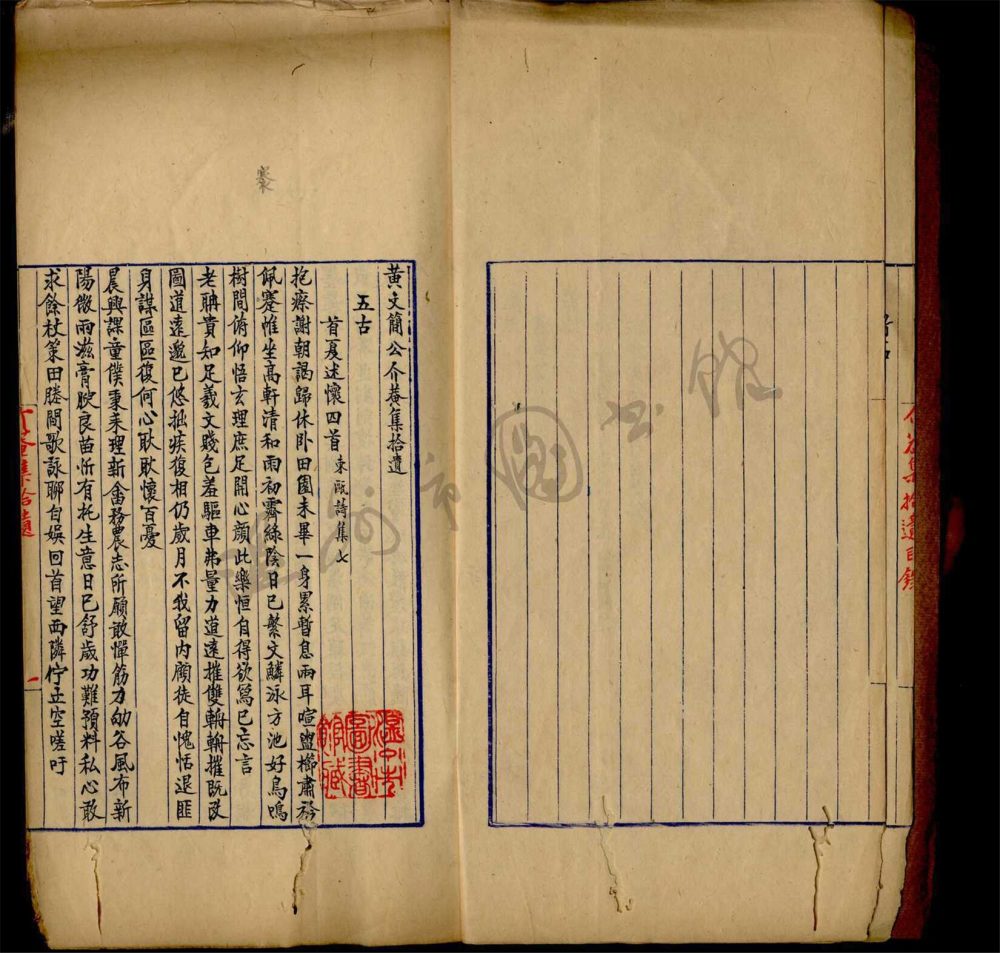 黄文簡公介菴集拾遺
五古
首夏述懷四首 東甌詩集七
抱瘵謝朝謁歸休卧田園未畢一身累暫息兩耳喧盥櫛肅衿
佩褰帷坐高軒清和雨初霽綠陰日已繁文鱗泳方池好鳥鳴
樹間俯仰悟玄理庶足開心顏此樂恒自得欲寫已忘言
老聃貴知足羲文賤包羞驅車弗量力道遠摧雙輈輈摧既改
圖道遠邈已悠拙疾復相仍歲月不我留内顧徒自愧恬退匪
身謀區區復何心耿耿懷百憂
晨興課童僕秉耒理新畬務農志所願敢憚筋力劬谷風布新
陽微雨滋膏腴良苗忻有托生意日已舒歲功難預料私心敢
求餘杖策田塍間歌詠聊自娛回首望西隣佇立空嗟吁
介菴集拾遺
一
褰
介菴集拾遺目錄
溫州市圖書館
溫州市圖書館藏